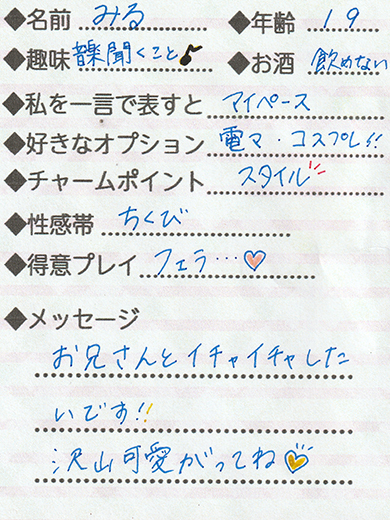 ◆名前 みる ◆年齢 19
◆趣味 音楽聞くこと♪ ◆お酒 飲めない
◆私を一言で表すと マイペース
◆好きなオプション 電マ・コスプレ!!
◆チャームポイント スタイル
◆性感帯 ちくび
◆得意プレイ フェラ…♡
◆メッセージ
お兄さんとイチャイチャした
いです!!
沢山可愛がってね♡